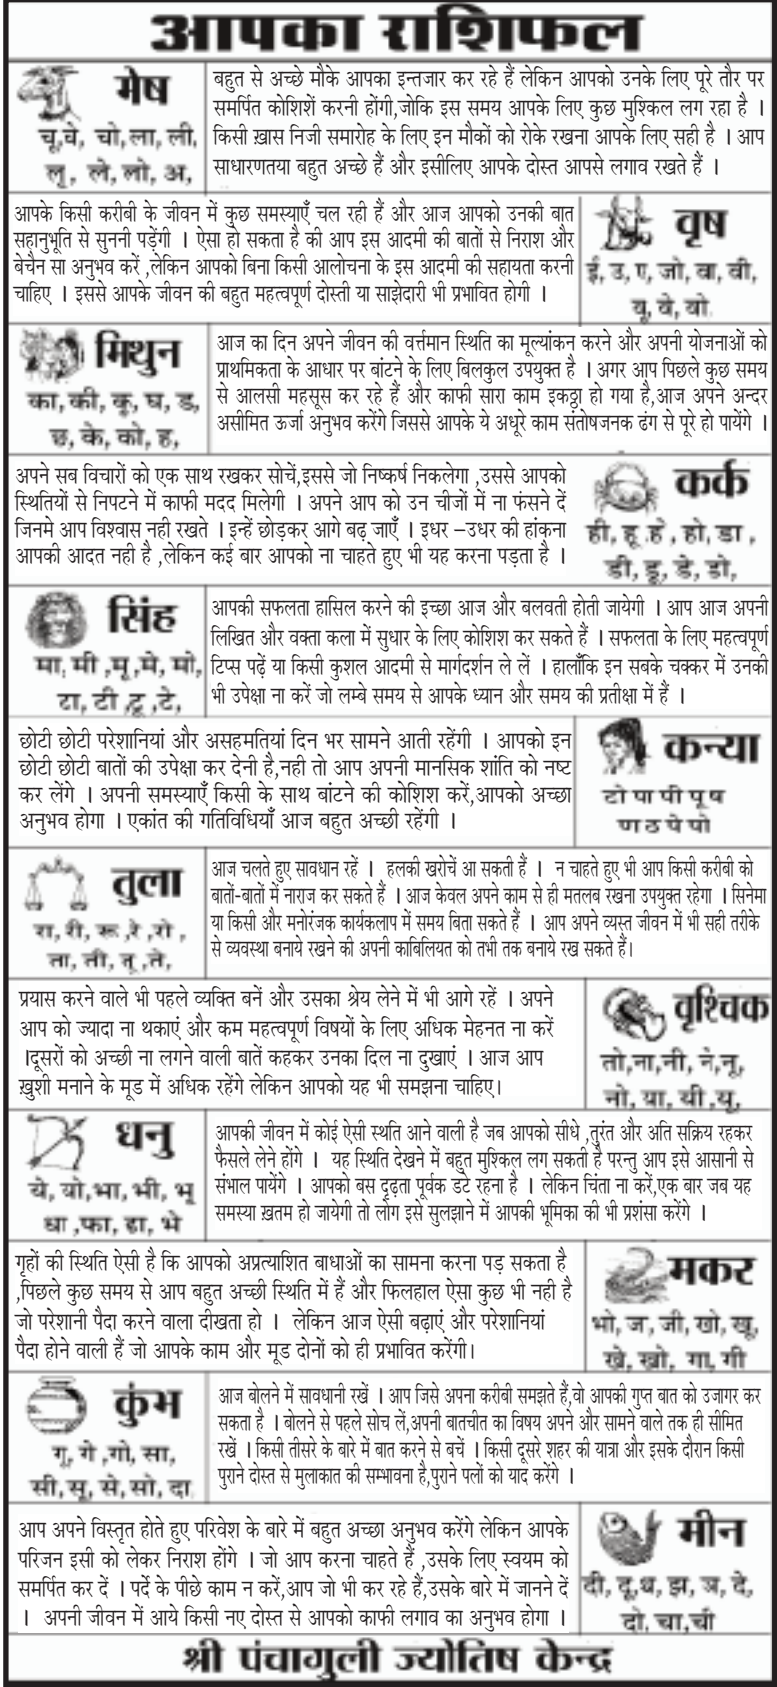 आपका राशिफल
मेष
चू,चे, चो,ला, ली,
लू, ले, लो, अ,
बहुत से अच्छे मौके आपका इन्तजार कर रहे हैं लेकिन आपको उनके लिए पूरे तौर पर
समर्पित कोशिशें करनी होंगी,जोकि इस समय आपके लिए कुछ मुश्किल लग रहा है ।
किसी ख़ास निजी समारोह के लिए इन मौकों को रोके रखना आपके लिए सही है । आप
साधारणतया बहुत अच्छे हैं और इसीलिए आपके दोस्त आपसे लगाव रखते हैं ।
आपके किसी करीबी के जीवन में कुछ समस्याएँ चल रही हैं और आज आपको उनकी बात
सहानुभूति से सुननी पड़ेंगी । ऐसा हो सकता है की आप इस आदमी की बातों से निराश और
बेचैन सा अनुभव करें ,लेकिन आपको बिना किसी आलोचना के इस आदमी की सहायता करनी
चाहिए । इससे आपके जीवन की बहुत महत्वपूर्ण दोस्ती या साझेदारी भी प्रभावित होगी ।
वृष
ई, उ, ए, जो, वा, वी,
वू, वे, वो
मिथुन
का, की, कू, घ, ड,
छ, के, को, ह,
आज का दिन अपने जीवन की वर्त्तमान स्थिति का मूल्यांकन करने और अपनी योजनाओं को
प्राथमिकता के आधार पर बांटने के लिए बिलकुल उपयुक्त है । अगर आप पिछले कुछ समय
से आलसी महसूस कर रहे हैं और काफी सारा काम इकठ्ठा हो गया है,आज अपने अन्दर
असीमित ऊर्जा अनुभव करेंगे जिससे आपके ये अधूरे काम संतोषजनक ढंग से पूरे हो पायेंगे ।
अपने सब विचारों को एक साथ रखकर सोचें,इससे जो निष्कर्ष निकलेगा ,उससे आपको
स्थितियों से निपटने में काफी मदद मिलेगी । अपने आप को उन चीजों में ना फंसने दें
जिनमे आप विश्वास नही रखते । इन्हें छोड़कर आगे बढ़ जाएँ । इधर –उधर की हांकना
आपकी आदत नही है ,लेकिन कई बार आपको ना चाहते हुए भी यह करना पड़ता है ।
कर्क
ही, हू ,हे , हो, डा ,
डी, डू, डे, डो,
सिंह
मा, मी ,मू ,मे, मो,
टा, टी ,टू ,टे,
आपकी सफलता हासिल करने की इच्छा आज और बलवती होती जायेगी । आप आज अपनी
लिखित और वक्ता कला में सुधार के लिए कोशिश कर सकते हैं । सफलता के लिए महत्वपूर्ण
टिप्स पढ़ें या किसी कुशल आदमी से मार्गदर्शन ले लें । हालाँकि इन सबके चक्कर में उनकी
भी उपेक्षा ना करें जो लम्बे समय से आपके ध्यान और समय की प्रतीक्षा में हैं ।
छोटी छोटी परेशानियां और असहमतियां दिन भर सामने आती रहेंगी । आपको इन
छोटी छोटी बातों की उपेक्षा कर देनी है,नही तो आप अपनी मानसिक शांति को नष्ट
कर लेंगे । अपनी समस्याएँ किसी के साथ बांटने की कोशिश करें,आपको अच्छा
अनुभव होगा । एकांत की गतिविधियाँ आज बहुत अच्छी रहेंगी ।
कन्या
टो पा पी पू ष
ण ठ पे पो
तुला
रा, री, रू ,रे ,रो ,
ता, ती, तू ,ते,
आज चलते हुए सावधान रहें । हलकी खरोचें आ सकती हैं । न चाहते हुए भी आप किसी करीबी को
बातों-बातों में नाराज कर सकते हैं । आज केवल अपने काम से ही मतलब रखना उपयुक्त रहेगा । सिनेमा
या किसी और मनोरंजक कार्यकलाप में समय बिता सकते हैं । आप अपने व्यस्त जीवन में भी सही तरीके
से व्यवस्था बनाये रखने की अपनी काबिलियत को तभी तक बनाये रख सकते हैं।
प्रयास करने वाले भी पहले व्यक्ति बनें और उसका श्रेय लेने में भी आगे रहें । अपने
आप को ज्यादा ना थकाएं और कम महत्वपूर्ण विषयों के लिए अधिक मेहनत ना करें
।दूसरों को अच्छी ना लगने वाली बातें कहकर उनका दिल ना दुखाएं । आज आप
ख़ुशी मनाने के मूड में अधिक रहेंगे लेकिन आपको यह भी समझना चाहिए।
वृश्चिक
तो,ना,नी, ने,नू,
नो, या, यी,यू,
धनु
ये, यो,भा,भी, भू
धा ,फा, ढा, भे
आपकी जीवन में कोई ऐसी स्थति आने वाली है जब आपको सीधे ,तुरंत और अति सक्रिय रहकर
फैसले लेने होंगे । यह स्थिति देखने में बहुत मुश्किल लग सकती है परन्तु आप इसे आसानी से
संभाल पायेंगे । आपको बस दृढ़ता पूर्वक डटे रहना है । लेकिन चिंता ना करें,एक बार जब यह
समस्या ख़तम हो जायेगी तो लोग इसे सुलझाने में आपकी भूमिका की भी प्रशंसा करेंगे ।
गृहों की स्थिति ऐसी है कि आपको अप्रत्याशित बाधाओं का सामना करना पड़ सकता है
,पिछले कुछ समय से आप बहुत अच्छी स्थिति में हैं और फिलहाल ऐसा कुछ भी नही है
जो परेशानी पैदा करने वाला दीखता हो । लेकिन आज ऐसी बढ़ाएं और परेशानियां
पैदा होने वाली हैं जो आपके काम और मूड दोनों को ही प्रभावित करेंगी।
मकर
भो, ज, जी, खो, खू,
खे, खो, गा, गी
कुंभ
गू, गे ,गो, सा,
सी, सू, से, सो, दा
आज बोलने में सावधानी रखें । आप जिसे अपना करीबी समझते हैं,वो आपकी गुप्त बात को उजागर कर
सकता है । बोलने से पहले सोच लें,अपनी बातचीत का विषय अपने और सामने वाले तक ही सीमित
रखें । किसी तीसरे के बारे में बात करने से बचें । किसी दूसरे शहर की यात्रा और इसके दौरान किसी
पुराने दोस्त से मुलाकात की सम्भावना है,पुराने पलों को याद करेंगे ।
आप अपने विस्तृत होते हुए परिवेश के बारे में बहुत अच्छा अनुभव करेंगे लेकिन आपके
परिजन इसी को लेकर निराश होंगे । जो आप करना चाहते हैं ,उसके लिए स्वयम को
समर्पित कर दें । पर्दे के पीछे काम न करें,आप जो भी कर रहे हैं,उसके बारे में जानने दें
। अपनी जीवन में आये किसी नए दोस्त से आपको काफी लगाव का अनुभव होगा ।
मीन
दी, दू,थ, झ, ञ, दे,
दो, चा,ची
श्री पंचागुली ज्योतिष केन्द्र